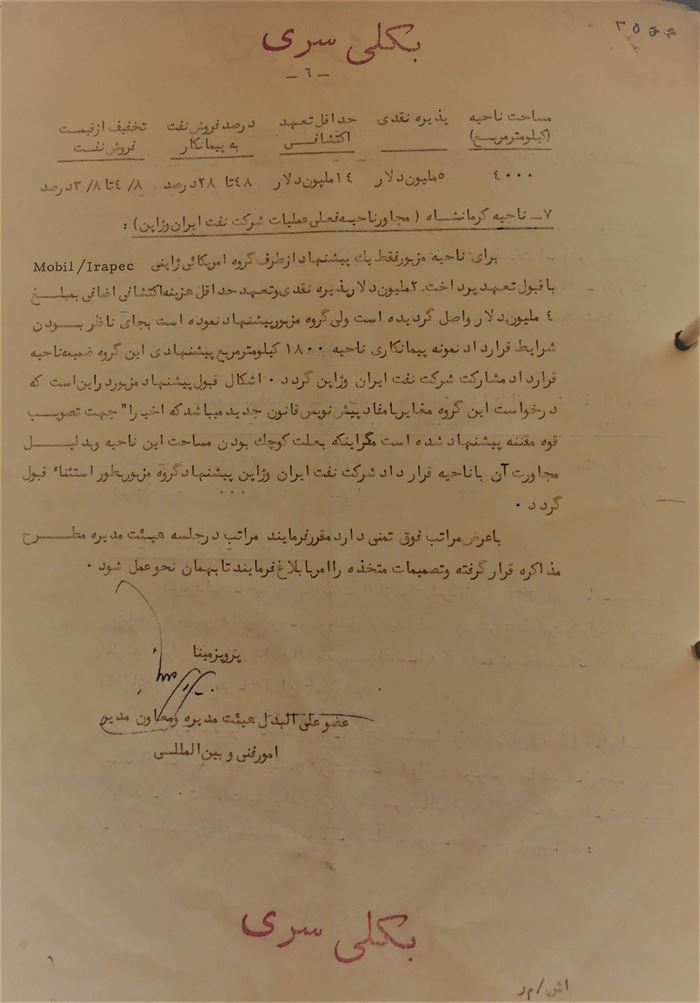 بکلی سری
- ٦ -
مساحت ناحیه پذیره نقدی حداقل تعهد درصد فروش نفت تخفیف از قیمت
(کیلومتر مربع) اکتشافی به پیمانکار فروش نفت
٤٠٠٠ ٥ میلیون دلار ١٤ میلیون دلار ٤٨ تا ٢٨ درصد ٤/٨ تا ٣/٨ درصد
٧ـ ناحیه کرمانشاه ( مجاور ناحیه فعلی عملیات شرکت نفت ایران وژاپن ) :
برای ناحیه مزبور فقط یك پیشنهاد از طرف گروه امریکائی ژاپنی Mobil/Irapec
با قبول تعهد پرداخت ٢ میلیون دلار پذیره نقدی وتعهد حداقل هزینه اکتشافی اضافی بمبلغ
٤ میلیون دلار واصل گردیده است ولی گروه مزبور پیشنهاد نموده است بجای ناظر بودن
شرایط قرارداد نمونه پیمانکاری ناحیه ١٨٠٠ کیلومتر مربع پیشنهادی این گروه ضمیمه ناحیه
قرارداد مشارکت شرکت نفت ایران وژاپن گردد ٠ اشکال قبول پیشنهاد مزبور در این است که
درخواست این گروه مغایر با مفاد پیش نویس قانون جدید میباشد که اخیرا" جهت تصویب
قوه مقننه پیشنهاد شده است مگر اینکه بعلت کوچك بودن مساحت این ناحیه وبدلیل
مجاورت آن با ناحیه قرارداد شرکت نفت ایران وژاپن پیشنهاد گروه مزبور بطور استثناء قبول
گردد ٠
با عرض مراتب فوق تمنی دارد مقرر فرمایند مراتب در جلسه هیئت مدیره مطرح
مذاکره قرار گرفته وتصمیمات متخذه را امر با بلاغ فرمایند تا بهمان نحو عمل شود ٠
پرویز مینا
عضو علی البدل هیئت مدیره ومعاون مدیر
امور فنی و بین المللی
بکلی سری
اش/م ر